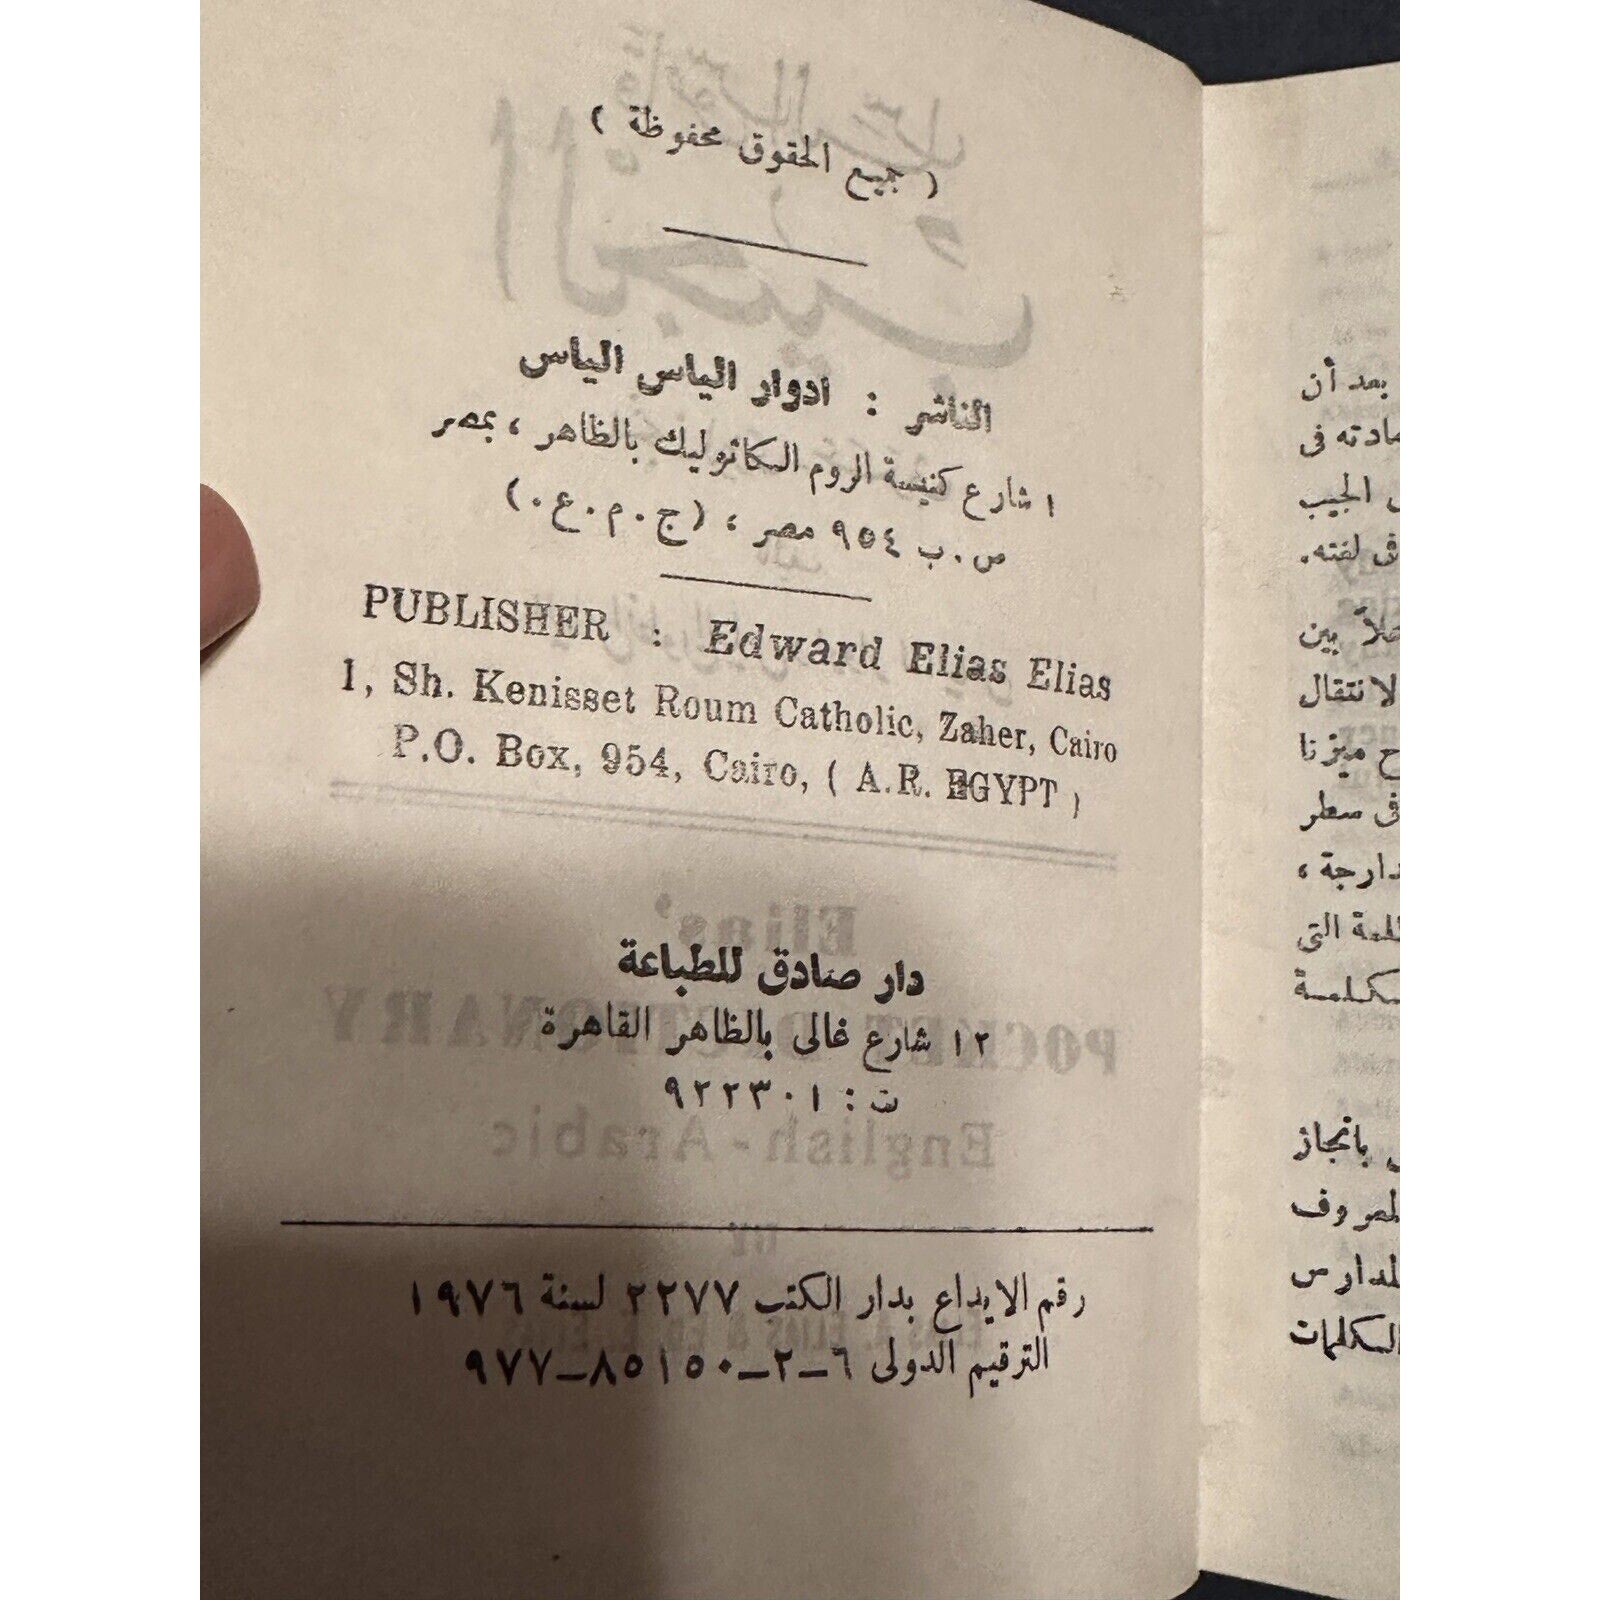 ( جميع الحقوق محفوظة )
الناشر : ادوار الياس الياس
١ شارع كنيسة الروم الكاثوليك بالظاهر ، بمصر
ص . ب ٩٥٤ مصر ، (ج . م . ع .)
PUBLISHER : Edward Elias Elias
1, Sh. Kenisset Roum Catholic, Zaher, Cairo
P.O. Box, 954, Cairo, ( A.R. EGYPT )
دار صادق للطباعة
١٢ شارع غالى بالظاهر القاهرة
ت : ٩٢٢٣٠١
رقم الايداع بدار الكتب ٢٢٧٧ لسنة ١٩٧٦
الترقيم الدولى ٦–٢–٨٥١٥٠–٩٧٧
Elias'
POCKET DICTIONARY
English - Arabic
BY
بعد أن
مادته فى
الجيب
لغته.
بين
لانتقال
ميزنا
فى سطر
دارجة ،
التى
كلمة
بانجاز
المعروف
المدارس
الكلمات